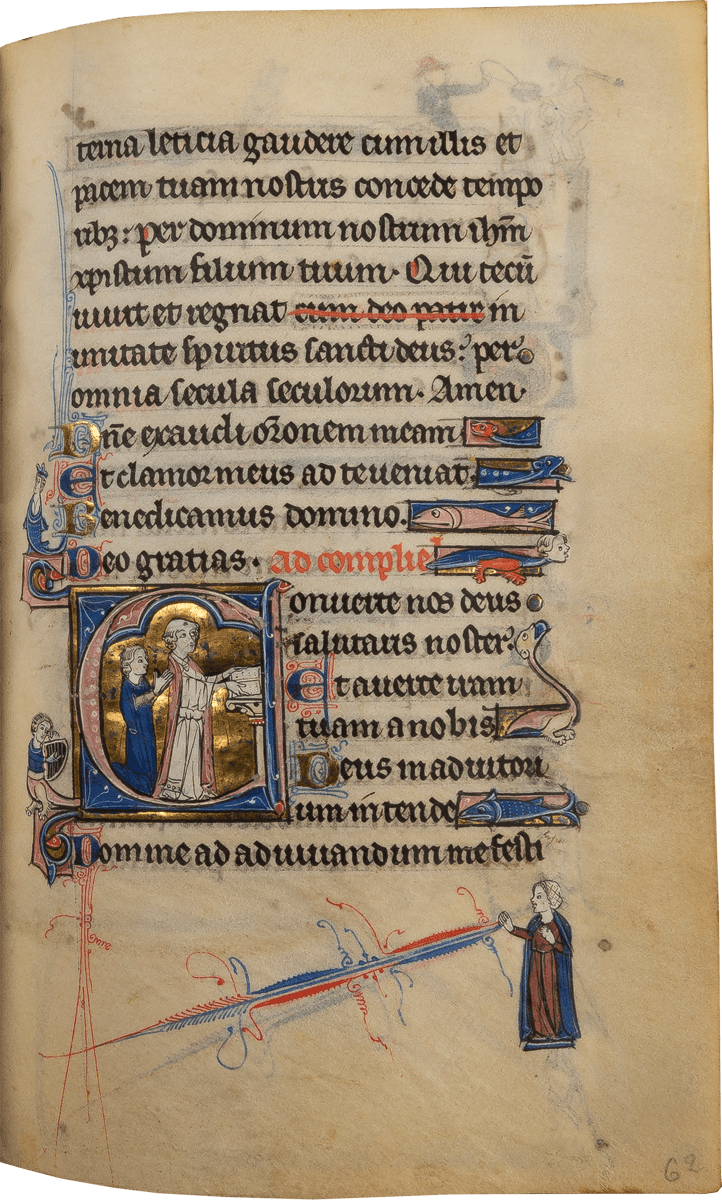 terna leticia gaudere cum illis et
pacem tuam nostris concede tempo
ribꝫ: per dominum nostrum ihm̄
xpistum filium tuum. Qui tecū
uiuit et regnat cum deo patre in
unitate spiritus sancti deus: per
omnia secula seculorum. Amen.
Dn̄e exaudi or̄onem meam
Et clamor meus ad te ueniat.
Benedicamus domino.
Deo gratias. ad complie
Conuerte nos deus
salutaris noster.
Et auerte iram
tuam a nobis
Deus in adiutori
um intende
Domine ad adiuuandum me festi
62